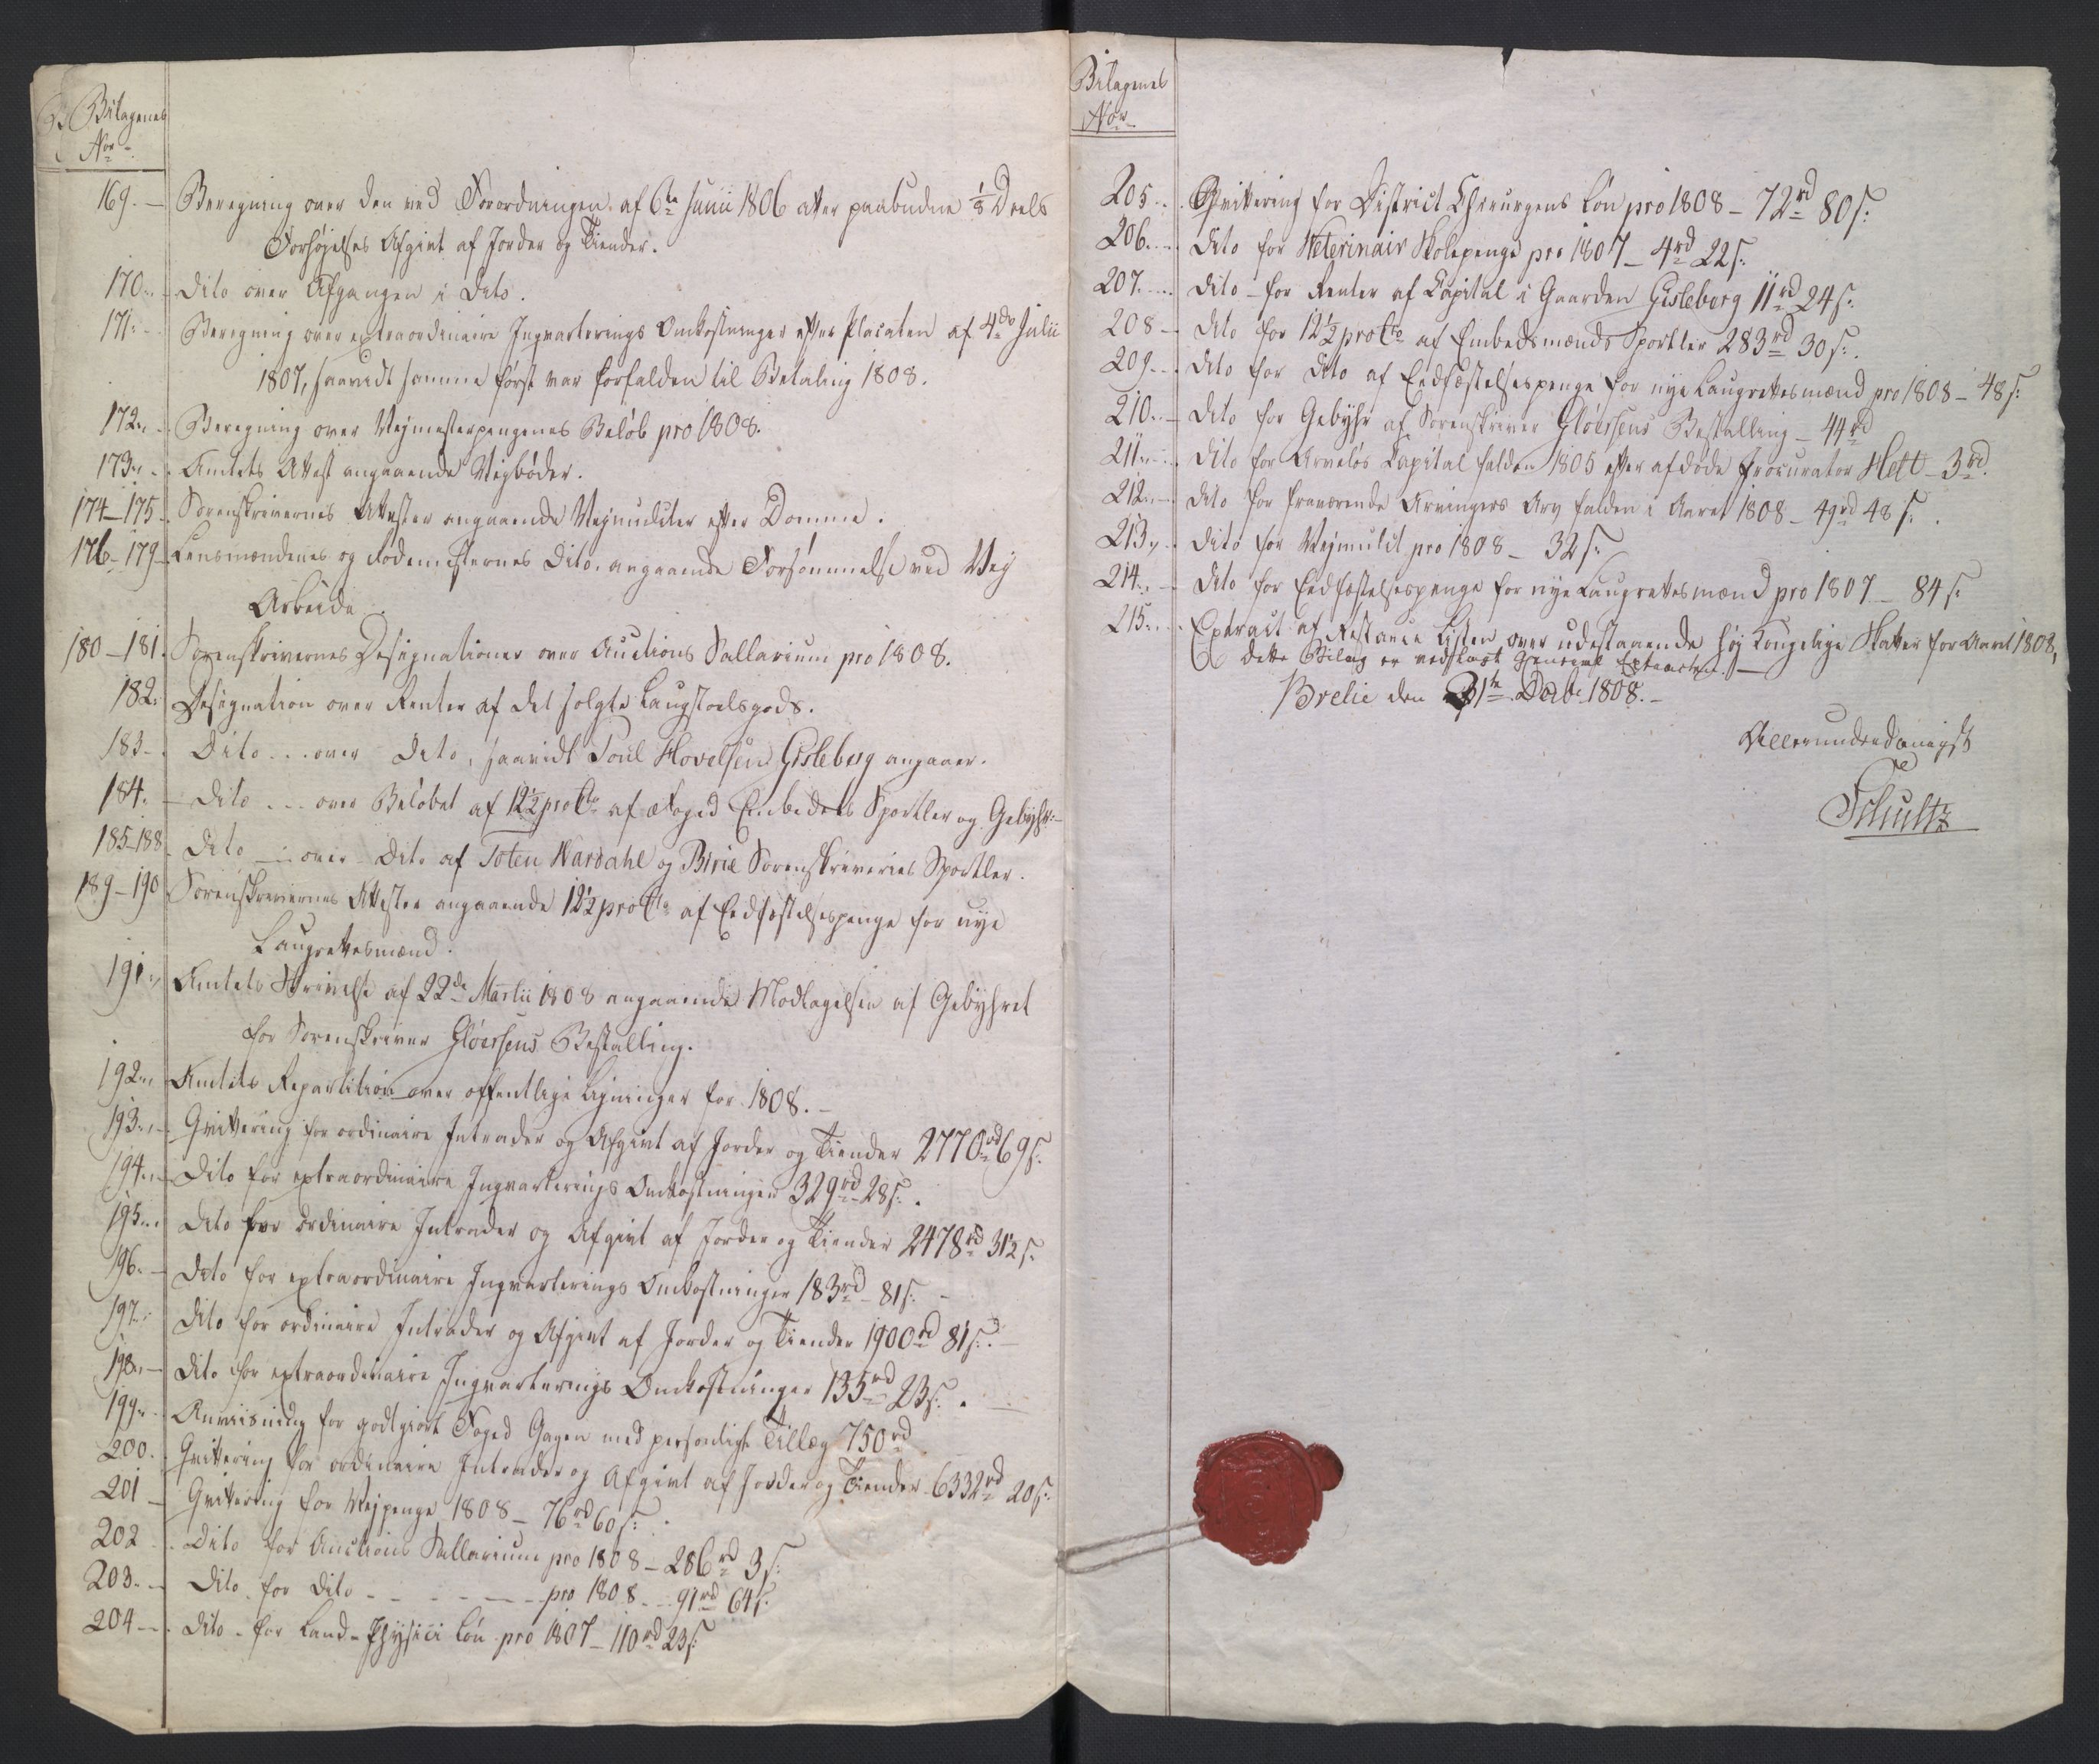 Bilagenes
No
169. Beregning over den ved Forordningen af 6te Junii 1806 atter paabudne 1/8 Deels
Forhøjelses Afgivt af Jorder og Tiender.
170. Dito over Afgangen i Dito.
171. Beregning over extraordinaire Inqvarterings Omkostninger efter Placaten af 4de Julii
1807, saavidt samme først var forfalden til Betaling 1808.
172. Beregning over Vejmesterpengenes Beløb pro 1808.
173. Amtets Attest angaaende Vigbøder.
174-175. Sorenskrivernes Attester angaaende Vejmulcter efter Domme.
176-179 Lensmændenes og Rodemesternes Dito angaaende Forsømmelse ved Vej
Arbeide.
180-181. Sorenskrivernes Designationer over Auctions Sallarium pro 1808.
182. Designation over Renter af det solgte Laugstoelsgods.
183. Dito ... over Dito, saavidt Poul Hovelsen Gisleberg angaaer.
184. Dito ... over Beløbet af 12½ proCto af Foged Embedets Sportler og Gebyhr.
185-188 Dito over Dito af Toten Wardahl og Birie Sorenskriveries Sportler.
189-190 Sorenskrivernes Attester angaaende 12½ proCto af Eedfæstelsespenge for nye
Laugrettesmænd.
191. Amtets Skrivelse af 22de Martii 1808 angaaende Modtagelsen af Gebyhret
for Sorenskriver Gløersens Bestalling.
192. Amtets Repartition over offentlige Ligninger for 1808.
193. Qvittering for ordinaire Intrader og Afgivt af Jorder og Tiender 2770rd 69s:
194. Dito for extraordinaire Inqvarterings Omkostninger 329rd 28s:.
195. Dito for ordinaire Intrader og Afgivt af Jorder og Tiender 2478rd 31½s:
196. Dito for extraordinaire Inqvarterings Omkostninger 183rd 81s: -
197. Dito for ordinaire Intrader og Afgivt af Jorder og Tiender 1900rd 81s:.
198. Dito for extraordinaire Inqvarterings Omkostninger 135rd 23s:.
199. Anviisning for godtgiort Foged Gagen med personligt Tillæg 750rd
200. Qvittering for ordinaire Intrader og Afgivt af Jorder og Tiender 6332rd 20s:
201 Qvittering for Vejpenge 1808 - 76rd 60s:
202 Dito for Auctions Sallarium pro 1808 - 286rd 3s:
203. Dito for Dito - - - - - pro 1808 - 91rd 64s:
204 Dito for Land-Physici Løn pro 1807 - 110rd 23s:
Bilagenes
No
205. Qvittering for District Chirurgens Løn pro 1808 - 72rd 80s:
206. Dito for Veterinair Skolepenge pro 1807 - 4rd 22s:
207. Dito for Renter af Capital i Gaarden Gisleberg 11rd 24s:
208 - Dito for 12½ proCto af Embedsmænds Sportler 283rd 30s:.
209. Dito for Dito af Eedfæstelsespenge for nye Laugrettesmænd pro 1808 - 48s:
210. Dito for Gebyhr af Sorenskriver Gløersens Bestalling - 44rd
211. Dito for Arveløs Capital falden 1805 efter afdøde Procurator Hett - 3rd.
212. Dito for fraværende Arvingers Arv falden i Aaret 1808 - 49rd 48s:.
213. Dito for Vejmulct pro 1808 - 32s:
214. Dito for Eedfæstelsespenge for nye Laugrettesmænd pro 1807 - 84s:
215. Extract af Restance Listen over udestaaende høj Kongelige Skatter for Aaret 1808,
dette Bilag er vedhæft General Extracten. -
Brelie den 31te Decbr 1808. -
Allerunderdanigst
Schultz